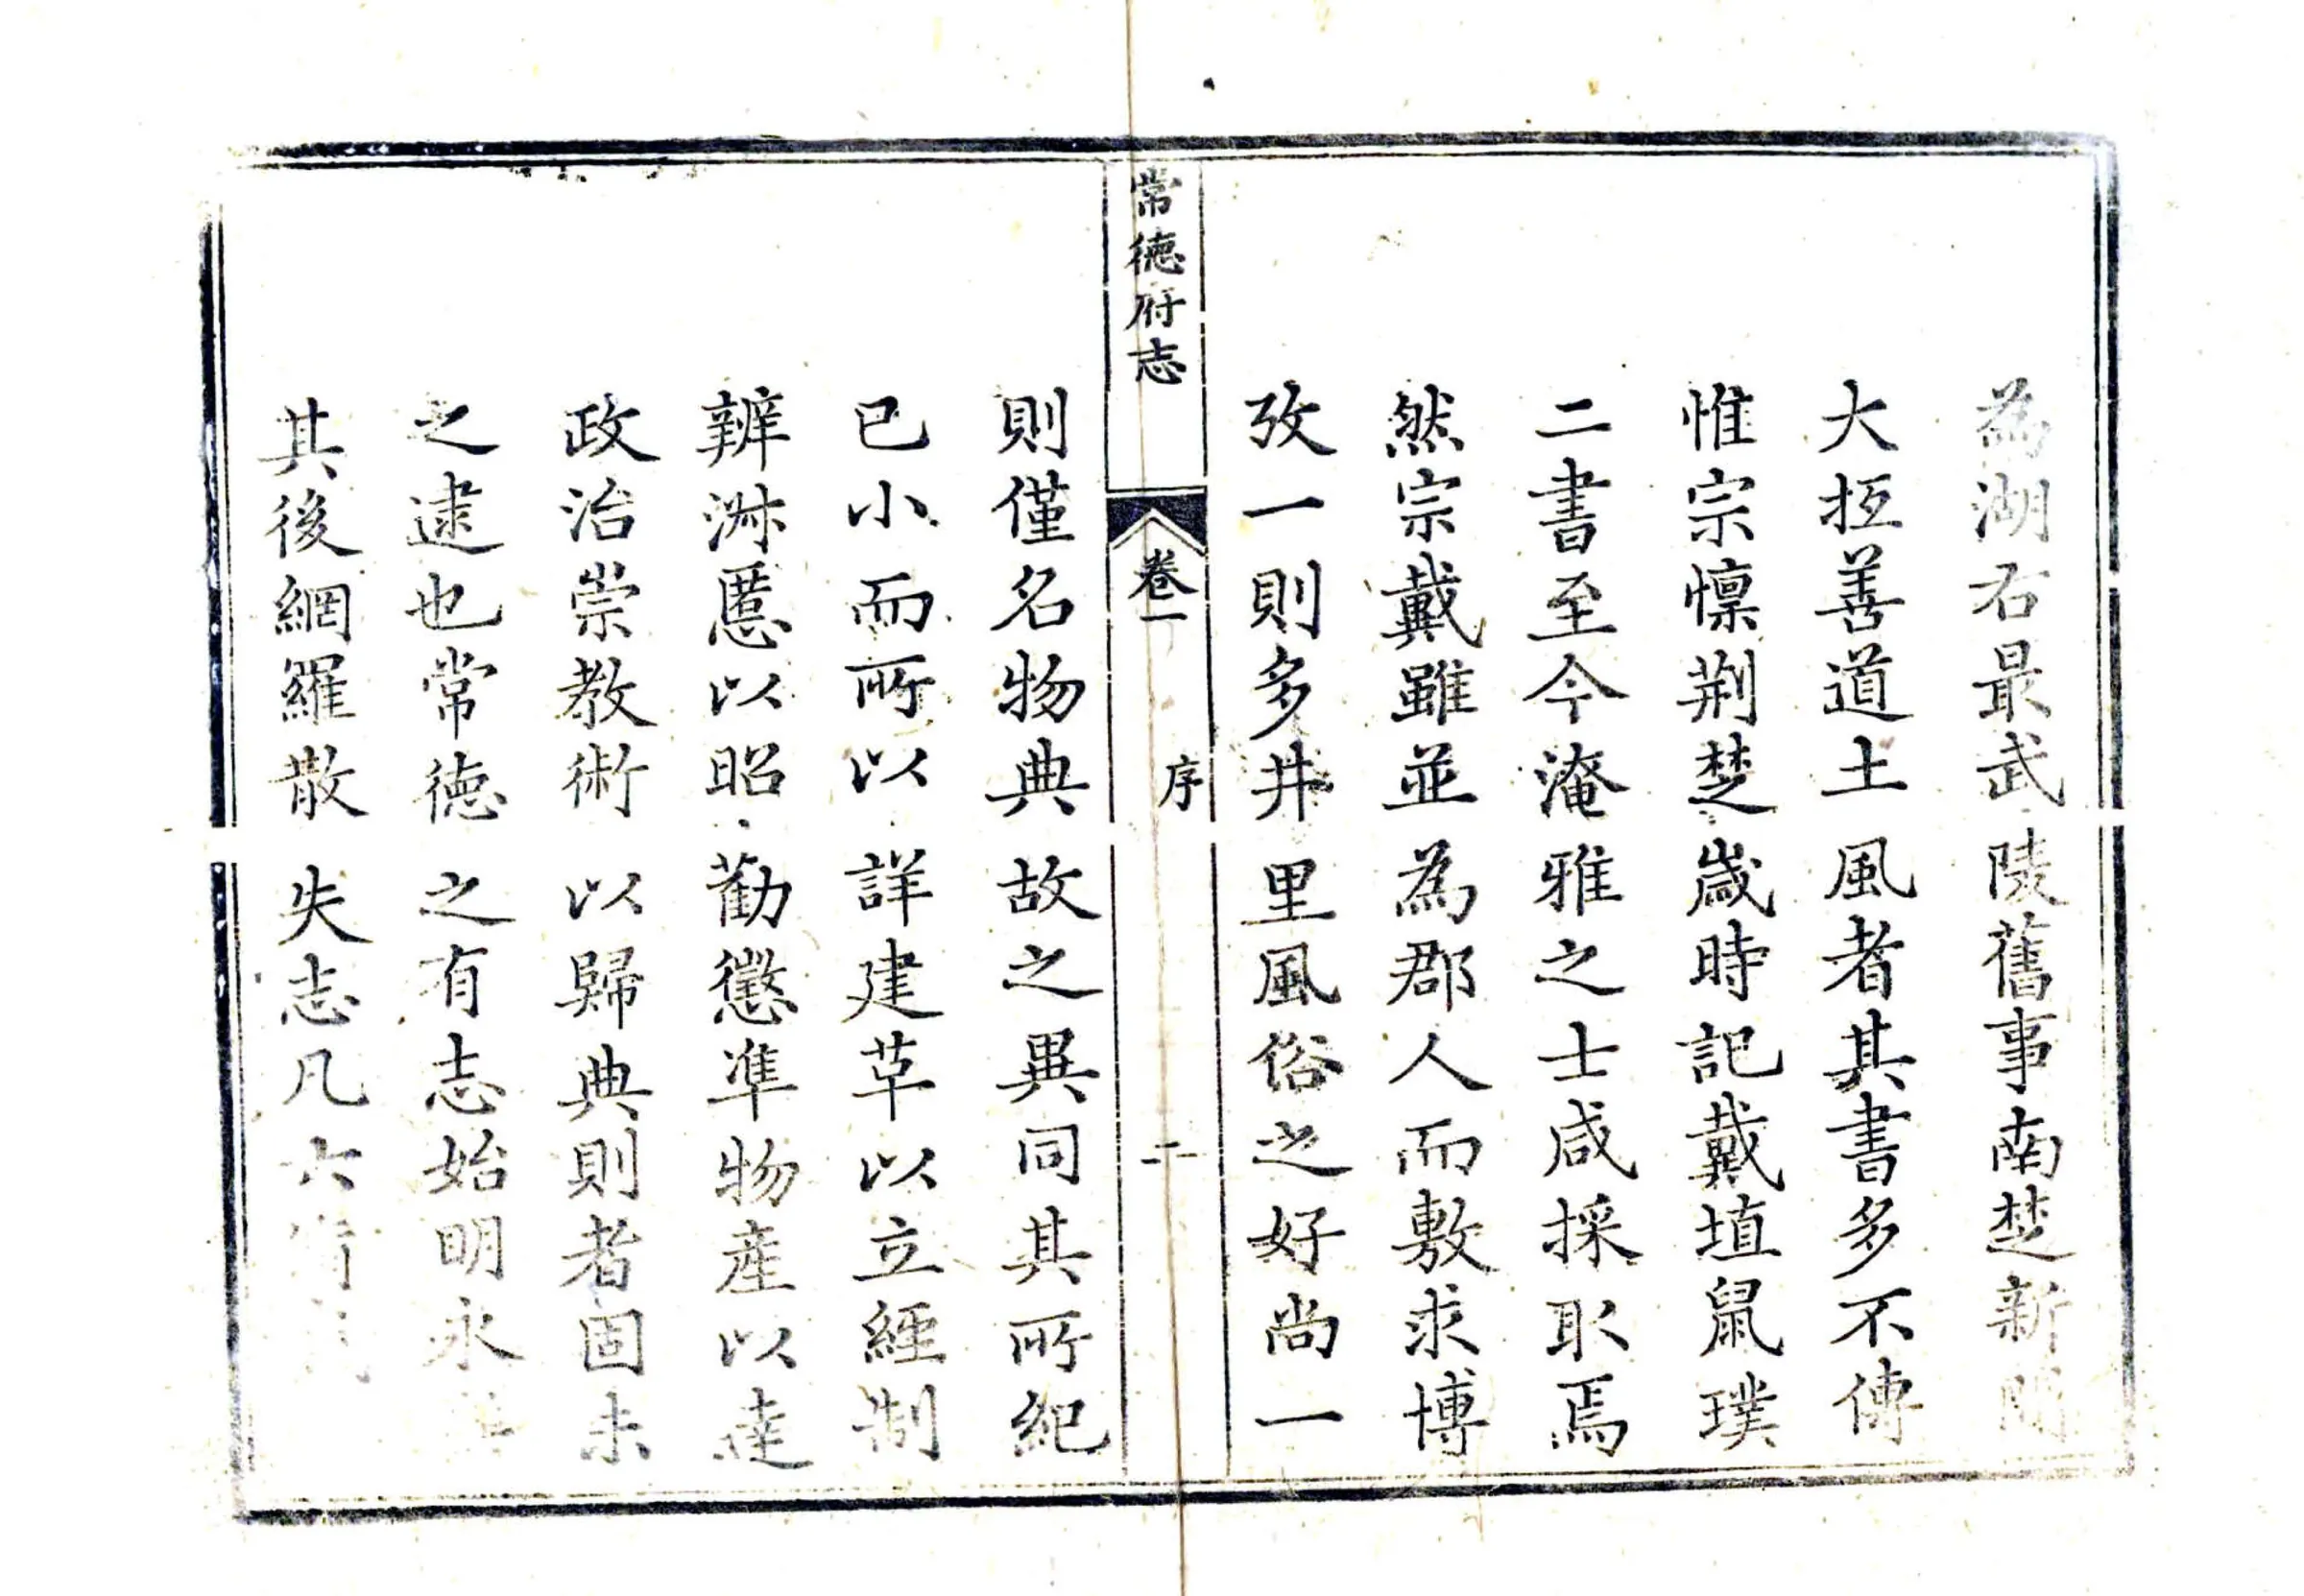 為湖右最武陵舊事南楚新聞
大抵善道土風者其書多不傳
惟宗懍荆楚嵗時記戴埴鼠璞
二書至今淹雅之士咸採取焉
然宗戴雖並為郡人而敷求博
攷一則多井里風俗之好尚一
常德府志
卷一
序
二
則僅名物典故之異同其所紀
已小而所以詳建革以立經制
辨淑慝以昭勸懲準物產以達
政治崇教術以歸典則者固未
之逮也常德之有志始明永
其後網羅散失志凡六